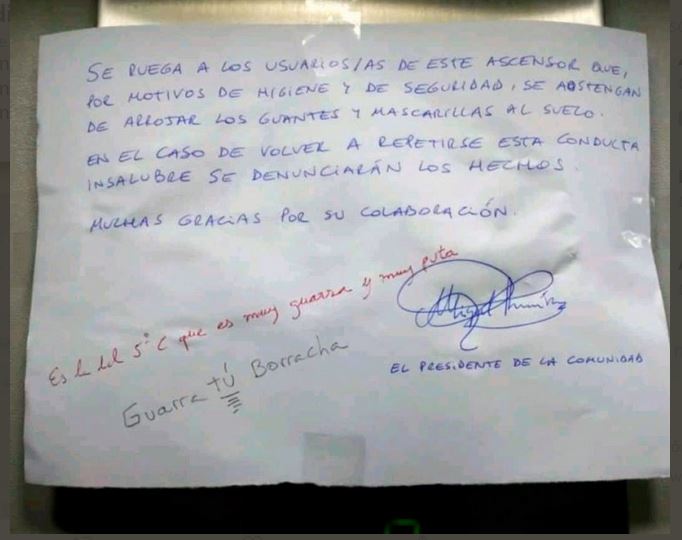 SE RUEGA A LOS USUARIOS/AS DE ESTE ASCENSOR QUE,
POR MOTIVOS DE HIGIENE Y DE SEGURIDAD, SE ABSTENGAN
DE ARROJAR LOS GUANTES Y MASCARILLAS AL SUELO.
EN EL CASO DE VOLVER A REPETIRSE ESTA CONDUCTA
INSALUBRE SE DENUNCIARÁN LOS HECHOS.
MUCHAS GRACIAS POR SU COLABORACIÓN.
Es la del 5º C que es muy guarra y muy puta
Guarra tú Borracha
EL PRESIDENTE DE LA COMUNIDAD